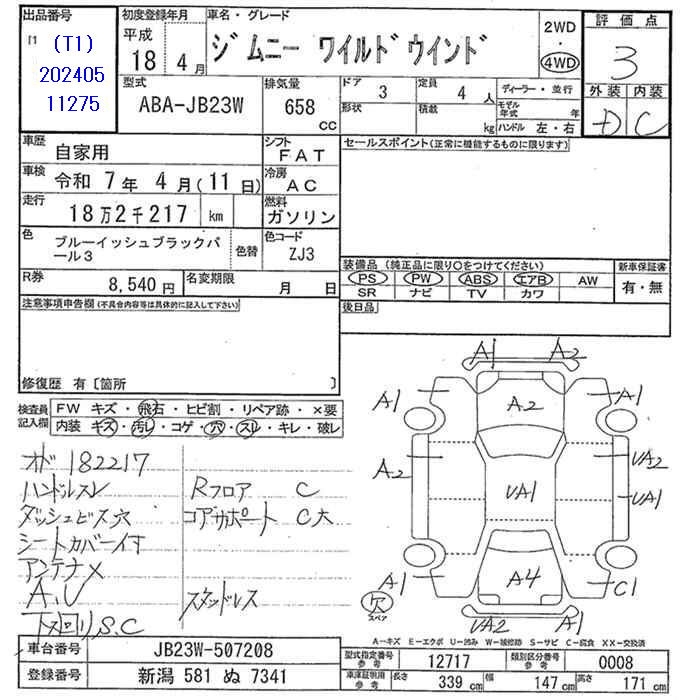 出品番号
(T1)
202405
11275
初度登録年月
平成
18 4月
車名・グレード
ジムニー ワイルドウインド
2WD
・
4WD
評価点
3
外装 内装
D C
型式
ABA-JB23W
排気量
658
cc
ドア 3
形状
定員 4人
積載 kg
ディーラー・並行
モデル年式 年
ハンドル 左・右
車歴 自家用
シフト FAT
車検 令和 7年 4月(11日)
冷房 AC
走行 18万2千217 km
燃料 ガソリン
色 ブルーイッシュブラックパール3
色替
色コード ZJ3
R券 8,540円
名変期限 月 日
セールスポイント(正常に機能するものに限ります)
装備品(純正品に限り○をつけてください)
PS PW ABS エアB AW
SR ナビ TV カワ
新車保証書
有・無
後日品
注意事項申告欄(不具合内容等は具体的に記入して下さい)
修復歴 有〔箇所 〕
検査員記入欄
FW キズ・飛石・ヒビ割・リペア跡・×要
内装 キズ・汚レ・コゲ・穴・スレ・キレ・破レ
オド182217
ハンドルスレ
ダッシュビス穴
シートカバー付
アンテナ×
A,U
下廻りS.C
Rフロア C
コアサポート C大
スタッドレス
A1 A2
A1 A2 A1
A2 UA1 UA2
UA1
A1 A4 C1
穴
スペア
UA2 A1
A-キズ E-エクボ U-凹み W-補修跡 S-サビ C-腐食 XX-交換済
車台番号 JB23W-507208
登録番号 新潟 581 ぬ 7341
型式指定番号 参考 12717
類別区分番号 参考 0008
車庫証明用 参考 長さ 339cm 幅 147cm 高さ 171cm